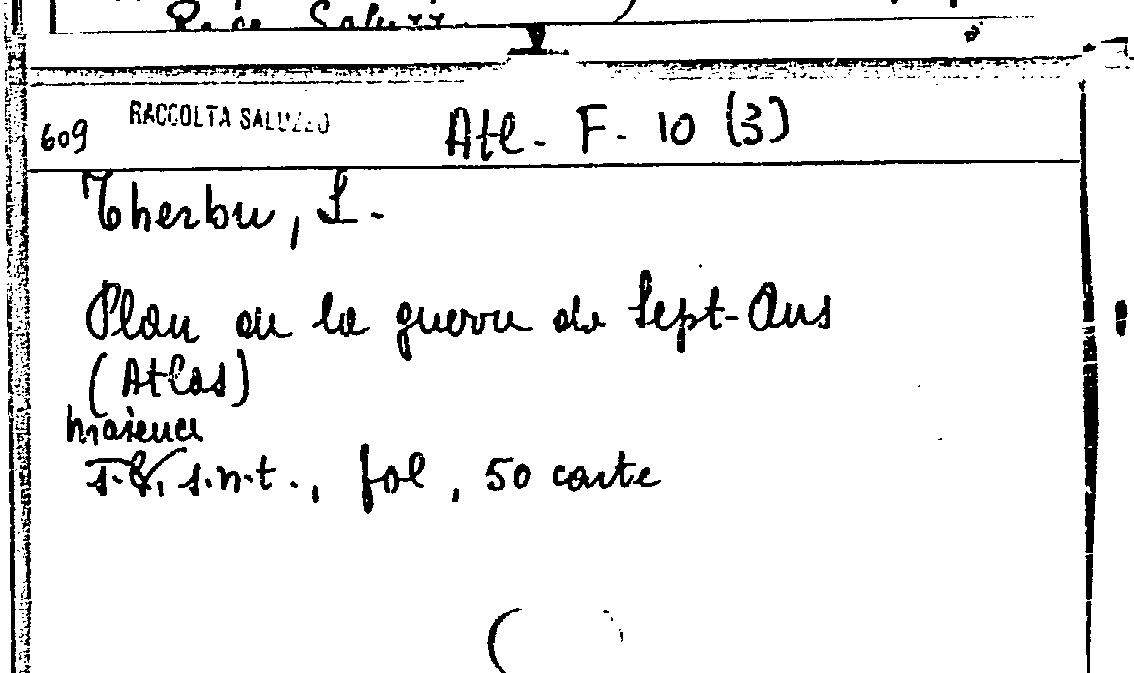 Racc. Saluzz.
609 RACCOLTA SALUZZO Atl. F. 10 (3)
Therbu, L.
Plan de la guerre de Sept-Ans
(Atlas)
Maience
s.l., s.n.t., fol, 50 carte